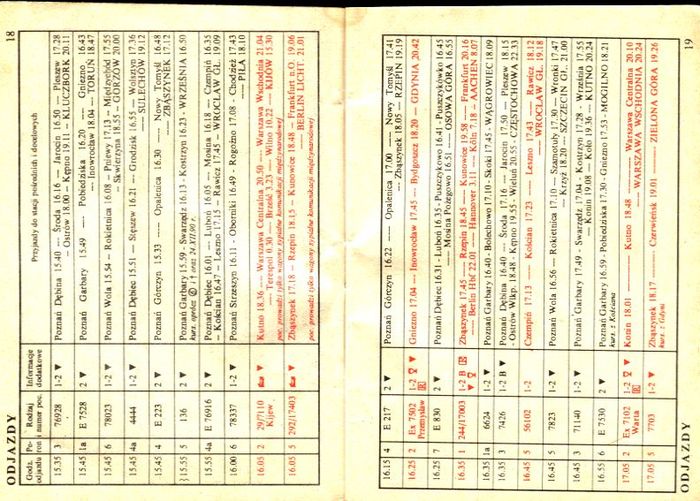 18
ODJAZDY
Godz. odjazdu Pe- ron Rodzaj i numer poc. Informacje dodatkowe Przyjazdy do stacji pośrednich i docelowych
15.35 3 76928 1-2 ▼ Poznań Dębina 15.40 — Środa 16.16 — Jarocin 16.50 — Pleszew 17.28
— Ostrów 18.00 — Kępno 19.11 — KLUCZBORK 20.11
15.45 1a E 7528 2 ▼ Poznań Garbary 15.49 — Pobiedziska 16.20 — Gniezno 16.43
— Inowrocław 18.04 — TORUŃ 18.47
15.45 6 78023 1-2 ▼ Poznań Wola 15.54 — Rokietnica 16.08 — Pniewy 17.13 — Międzychód 17.55
— Skwierzyna 18.55 — GORZÓW 20.00
15.45 4a 4444 1-2 ▼ Poznań Dębiec 15.51 — Stęszew 16.21 — Grodzisk 16.55 — Wolsztyn 17.36
— SULECHÓW 19.12
15.45 4 E 223 2 ▼ Poznań Górczyn 15.53 — Opalenica 16.30 — Nowy Tomyśl 16.48
— ZBĄSZYNEK 17.12
15.55 5 136 2 ▼ Poznań Garbary 15.59 - Swarzędz 16.13 - Kostrzyn 16.23 - WRZEŚNIA 16.50
15.55 4a E 76916 2 ▼ Poznań Dębiec 16.01 — Luboń 16.05 — Mosina 16.18 — Czempiń 16.35
— Kościan 16.47 — Leszno 17.15 — Rawicz 17.45 — WROCŁAW GŁ. 19.09
16.00 6 78337 1-2 ▼ Poznań Strzeszyn 16.11 - Oborniki 16.49 - Rogoźno 17.08 - Chodzież 17.43
— PIŁA 18.10
16.05 2 29/7110 Kijew Kutno 18.36 — Warszawa Centralna 20.50 — Warszawa Wschodnia 21.04
— Terespol 0.30 — Brześć 3.23 — Wilno 10.22 — KIJÓW 15.30
poc. prowadzi tylko wagony sypialne komunikacji międzynarodowej
16.05 5 292/17403 Zbąszynek 17.18 — Rzepin 18.15 — Kunowice 18.48 — Frankfurt n.O. 19.06
— BERLIN LICHT. 21.01
poc. prowadzi tylko wagony sypialne komunikacji międzynarodowej
16.15 4 E 217 2 ▼ Poznań Górczyn 16.22 — Opalenica 17.00 — Nowy Tomyśl 17.41
— Zbąszynek 18.05 — RZEPIN 19.19
16.25 2 Ex 7502 Przemysław 1-2 R Gniezno 17.04 — Inowrocław 17.45 — Bydgoszcz 18.20 — GDYNIA 20.42
16.25 7 E 830 2 ▼ Poznań Dębiec 16.31 - Luboń 16.35 - Puszczykowo 16.41 - Puszczykówko 16.45
— Mosina Pożegowo 16.51 — OSOWA GÓRA 16.55
16.35 1 244/17003 1-2 B Zbąszynek 17.45 — Rzepin 18.45 — Kunowice 19.58 — Frankfurt 20.16
— Berlin Hbf 22.01 — Hannover 3.11 — Köln 7.18 — AACHEN 8.07
16.35 1a 6624 1-2 ▼ Poznań Garbary 16.40 - Bolechowo 17.10 - Skoki 17.45 - WĄGROWIEC 18.09
16.35 3 7426 1-2 B ▼ Poznań Dębina 16.40 — Środa 17.16 — Jarocin 17.50 — Pleszew 18.15
- Ostrów Wlkp. 18.48 - Kępno 19.55 - Wieluń 20.55 - CZĘSTOCHOWA 22.33
16.45 5 56102 1-2 Czempiń 17.13 — Kościan 17.23 — Leszno 17.43 — Rawicz 18.12
— WROCŁAW GŁ. 19.18
16.45 5 7823 1-2 ▼ Poznań Wola 16.56 — Rokietnica 17.10 — Szamotuły 17.30 — Wronki 17.50
— Krzyż 18.20 — SZCZECIN GŁ. 21.00
16.45 3 71140 1-2 ▼ Poznań Garbary 17.49 — Swarzędz 17.04 — Kostrzyn 17.28 — Września 17.55
— Konin 19.08 — Koło 19.36 — KUTNO 20.24
16.55 6 E 7530 2 ▼ Poznań Garbary 16.59 - Pobiedziska 17.30 - Gniezno 17.53 - MOGILNO 18.21
kurs. z Kościana
17.05 2 Ex 7102 Warta 1-2 R Konin 18.01 — Kutno 18.48 — Warszawa Centralna 20.10
— WARSZAWA WSCHODNIA 20.24
17.05 5 7703 1-2 Zbąszynek 18.17 — Czerwieńsk 19.01 — ZIELONA GÓRA 19.26
kurs. z Gdyni
ODJAZDY
19